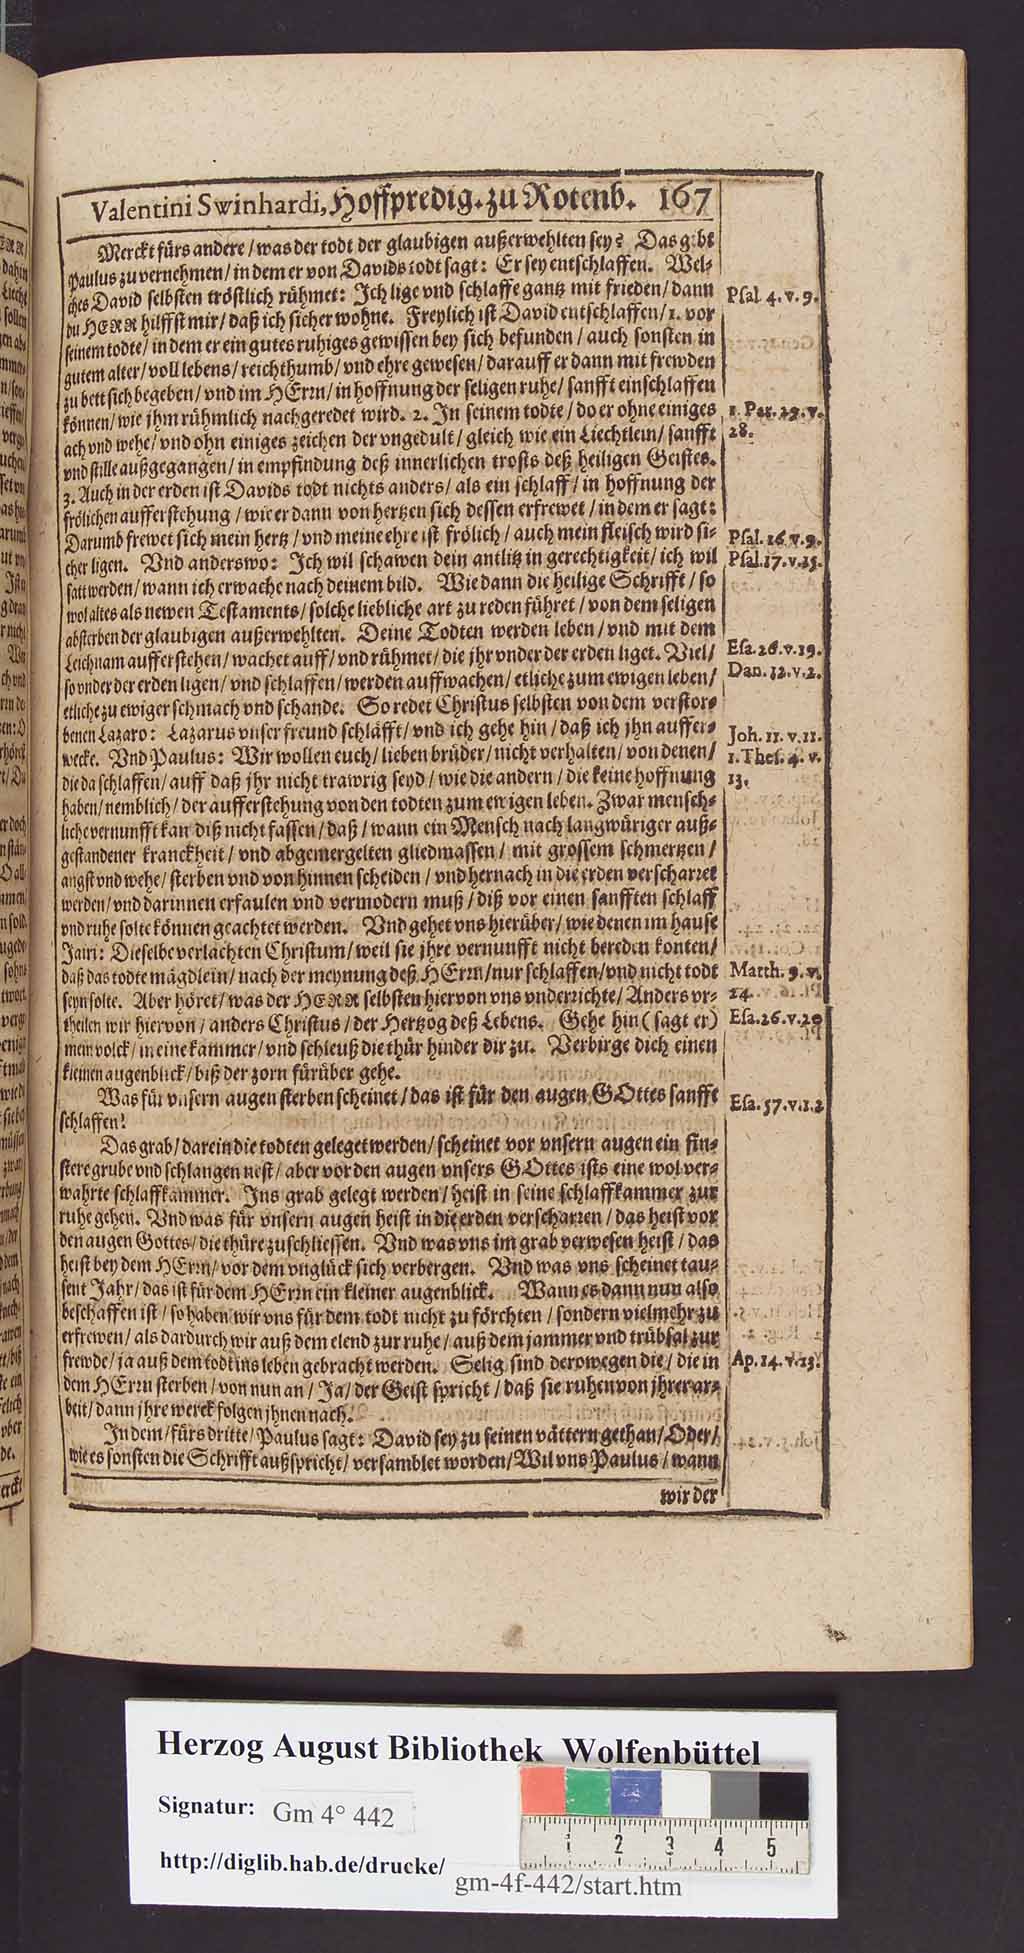 Valentini Swinhardi, Hoffpredig. zu Rotenb. 167
Merckt fürs andere / was der todt der glaubigen außerwehlten sey? Das gibt
Paulus zu vernehmen / in dem er von Davids todt sagt: Er sey entschlaffen. Wel-
ches David selbsten tröstlich rühmet: Ich lige vnd schlaffe gantz mit frieden / dann
du HERR hilffst mir / daß ich sicher wohne. Freylich ist David entschlaffen / 1. vor
seinem todte / in dem er ein gutes ruhiges gewissen bey sich befunden / auch sonsten in
gutem alter / voll lebens / reichthumb / vnd ehre gewesen / darauff er dann mit frewden
zu bett sich begeben / vnd im HErrn / in hoffnung der seligen ruhe / sanfft einschlaffen
können / wie jhm rühmlich nachgeredet wird. 2. In seinem todte / do er ohne einiges
ach vnd wehe / vnd ohn einiges zeichen der vngedult / gleich wie ein Liechtlein / sanfft
vnd stille außgegangen / in empfindung deß innerlichen trosts deß heiligen Geistes.
3. Auch in der erden ist Davids todt nichts anders / als ein schlaff / in hoffnung der
frölichen aufferstehung / wie er dann von hertzen sich dessen erfrewet / in dem er sagt:
Darumb frewet sich mein hertz / vnd meine ehre ist frölich / auch mein fleisch wird si-
cher ligen. Vnd anderswo: Ich wil schawen dein antlitz in gerechtigkeit / ich wil
satt werden / wann ich erwache nach deinem bild. Wie dann die heilige Schrifft / so
wol altes als newen Testaments / solche liebliche art zu reden führet / von dem seligen
absterben der glaubigen außerwehlten. Deine Todten werden leben / vnd mit dem
Leichnam aufferstehen / wachet auff / vnd rühmet / die jhr vnder der erden liget. Viel /
so vnder der erden ligen / vnd schlaffen / werden auffwachen / etliche zum ewigen leben /
etliche zu ewiger schmach vnd schande. So redet Christus selbsten von dem verstor-
benen Lazaro: Lazarus vnser freund schläfft / vnd ich gehe hin / daß ich jhn auffer-
wecke. Vnd Paulus: Wir wollen euch / lieben brüder / nicht verhalten / von denen /
die da schlaffen / auff daß jhr nicht trawrig seyd / wie die andern / die keine hoffnung
haben / nemblich / der aufferstehung von den todten zum ewigen leben. Zwar mensch-
liche vernunfft kan diß nicht fassen / daß / wann ein Mensch nach langwüriger auß-
gestandener kranckheit / vnd abgemergelten gliedmassen / mit grossem schmertzen /
angst vnd wehe / sterben vnd von hinnen scheiden / vnd hernach in die erden verscharret
werden / vnd darinnen erfaulen vnd vermodern muß / diß vor einen sanfften schlaff
vnd ruhe solte können geachtet werden. Vnd gehet vns hierüber / wie denen im hause
Jairi: Dieselbe verlachten Christum / weil sie jhre vernunfft nicht bereden konten /
daß das todte mägdlein / nach der meynung deß HErrn / nur schlaffen / vnd nicht todt
seyn solte. Aber höret / was der HERR selbsten hiervon vns vnderrichte / Anders vr-
theilen wir hiervon / anders Christus / der Hertzog deß Lebens. Gehe hin (sagt er)
mein volck / in eine kammer / vnd schleuß die thür hinder dir zu. Verbirge dich einen
kleinen augenblick / biß der zorn fürüber gehe.
Was für vnsern augen sterben scheinet / das ist für den augen GOttes sanffe
schlaffen!
Das grab / darein die todten geleget werden / scheinet vor vnsern augen ein fin-
stere grube vnd schlangen nest / aber vor den augen vnsers GOttes ists eine wol ver-
wahrte schlaffkammer. Ins grab gelegt werden / heist in seine schlaffkammer zur
ruhe gehen. Vnd was für vnsern augen heist in die erden verscharren / das heist vor
den augen Gottes / die thüre zuschliessen. Vnd was vns im grab verwesen heist / das
heist bey dem HErrn / vor dem vnglück sich verbergen. Vnd was vns scheinet tau-
sent Jahr / das ist für dem HErrn ein kleiner augenblick. Wann es dann nun also
beschaffen ist / so haben wir vns für dem todt nicht zu förchten / sondern vielmehr zu
erfrewen / als dardurch wir auß dem elend zur ruhe / auß dem jammer vnd trübsal zur
frewde / ja auß dem todt ins leben gebracht werden. Selig sind derowegen die / die in
dem HErrn sterben / von nun an / Ja / der Geist spricht / daß sie ruhen von jhrer ar-
beit / dann jhre werck folgen jhnen nach.
In dem / fürs dritte / Paulus sagt: David sey zu seinen vättern gethan / Oder /
wie es sonsten die Schrifft außspricht / versamblet worden / Wil vns Paulus / wann
wir der
Psal. 4. v. 9.
1. Par. 29. v.
28.
Psal. 16. v. 9.
Psal. 17. v. 15.
Esa. 26. v. 19.
Dan. 12. v. 2.
Joh. 11. v. 11.
1. Thes. 4. v.
13.
Matth. 9. v.
24.
Esa. 26. v. 20
Esa. 57. v. 1. 2
Ap. 14. v. 13.
Herzog August Bibliothek Wolfenbüttel
Signatur: Gm 4° 442
http://diglib.hab.de/drucke/
gm-4f-442/start.htm
1 2 3 4 5